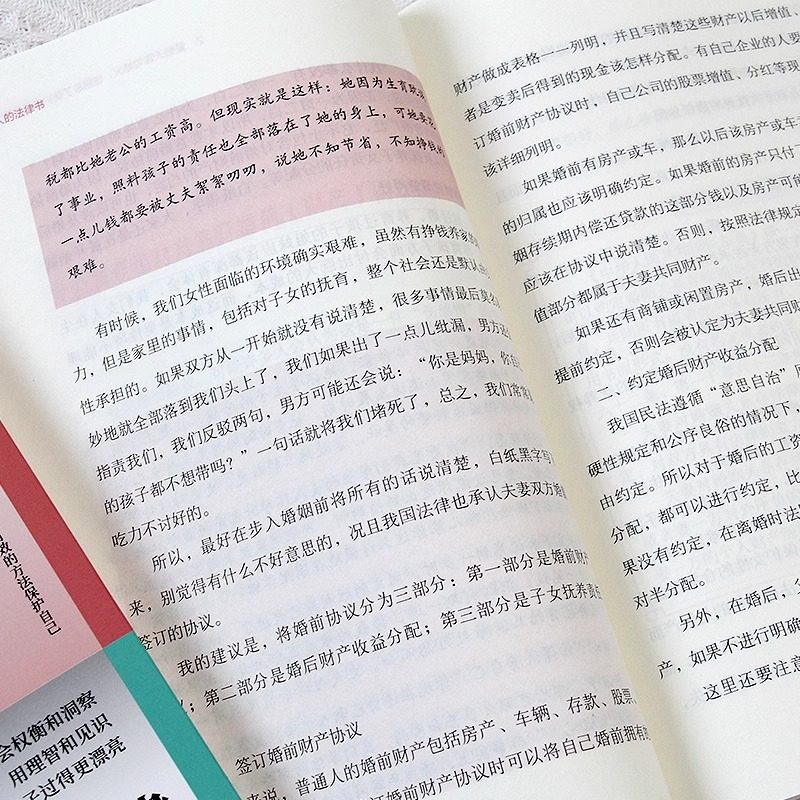 人的法律书
税都比她老公的工资高。但现实就是这样：她因为生育耽
了事业，照料孩子的责任也全部落在了她的身上，可她
一点儿钱都要被丈夫絮絮叨叨，说她不知节省，不知挣钱
艰难。
有时候，我们女性面临的环境确实艰难，虽然有挣钱养家的
力，但是家里的事情，包括对子女的抚育，整个社会还是默认
性承担的。如果双方从一开始就没有说清楚，很多事情最后莫名
妙地就全部落到我们头上了，我们如果出了一点儿纰漏，男方
指责我们，我们反驳两句，男方可能还会说：“你是妈妈，你自
的孩子都不想带吗？”一句话就将我们堵死了，总之，我们常常
吃力不讨好的。
所以，最好在步入婚姻前将所有的话说清楚，白纸黑字写
来，别觉得有什么不好意思的，况且我国法律也承认夫妻双方婚
签订的协议。
我的建议是，将婚前协议分为三部分：第一部分是婚前财产
；第二部分是婚后财产收益分配；第三部分是子女抚养责任
签订婚前财产协议
来说，普通人的婚前财产包括房产、车辆、存款、股票
婚前财产协议时可以将自己婚前拥有的
财产做成表格一一列明，并且写清楚这些财产以后增值、
者是变卖后得到的现金该怎样分配。有自己企业的人要
订婚前财产协议时，自己公司的股票增值、分红等现
该详细列明。
如果婚前有房产或车，那么以后该房产或车
的归属也应该明确约定。如果婚前的房产只付了
姻存续期内偿还贷款的这部分钱以及房产可能
应该在协议中说清楚。否则，按照法律规定
值部分都属于夫妻共同财产。
如果还有商铺或闲置房产，婚后出
提前约定，否则会被认定为夫妻共同财
二、约定婚后财产收益分配
我国民法遵循“意思自治”原
硬性规定和公序良俗的情况下，
由约定。所以对于婚后的工资
分配，都可以进行约定，比
果没有约定，在离婚时法
对半分配。
另外，在婚后，
产，如果不进行明确
这里还要注意
效的方法保护自己
会权衡和洞察
用理智和见识
子过得更漂亮